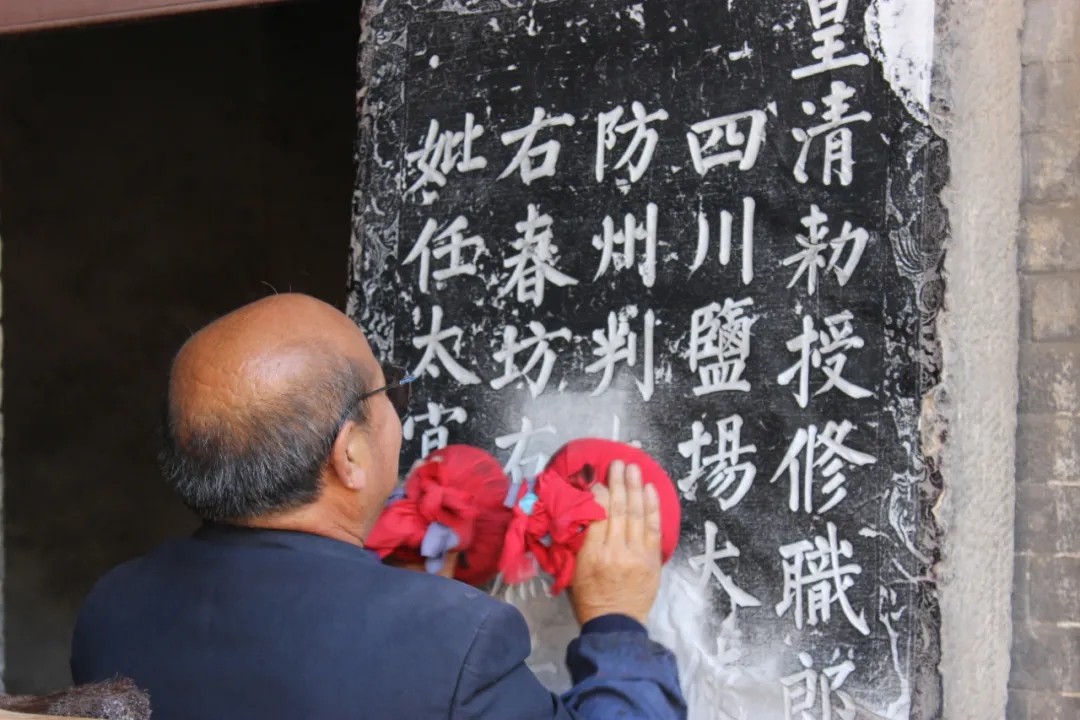 皇清勅授修職郎
四川鹽場大
防州判
右春坊右
妣任太